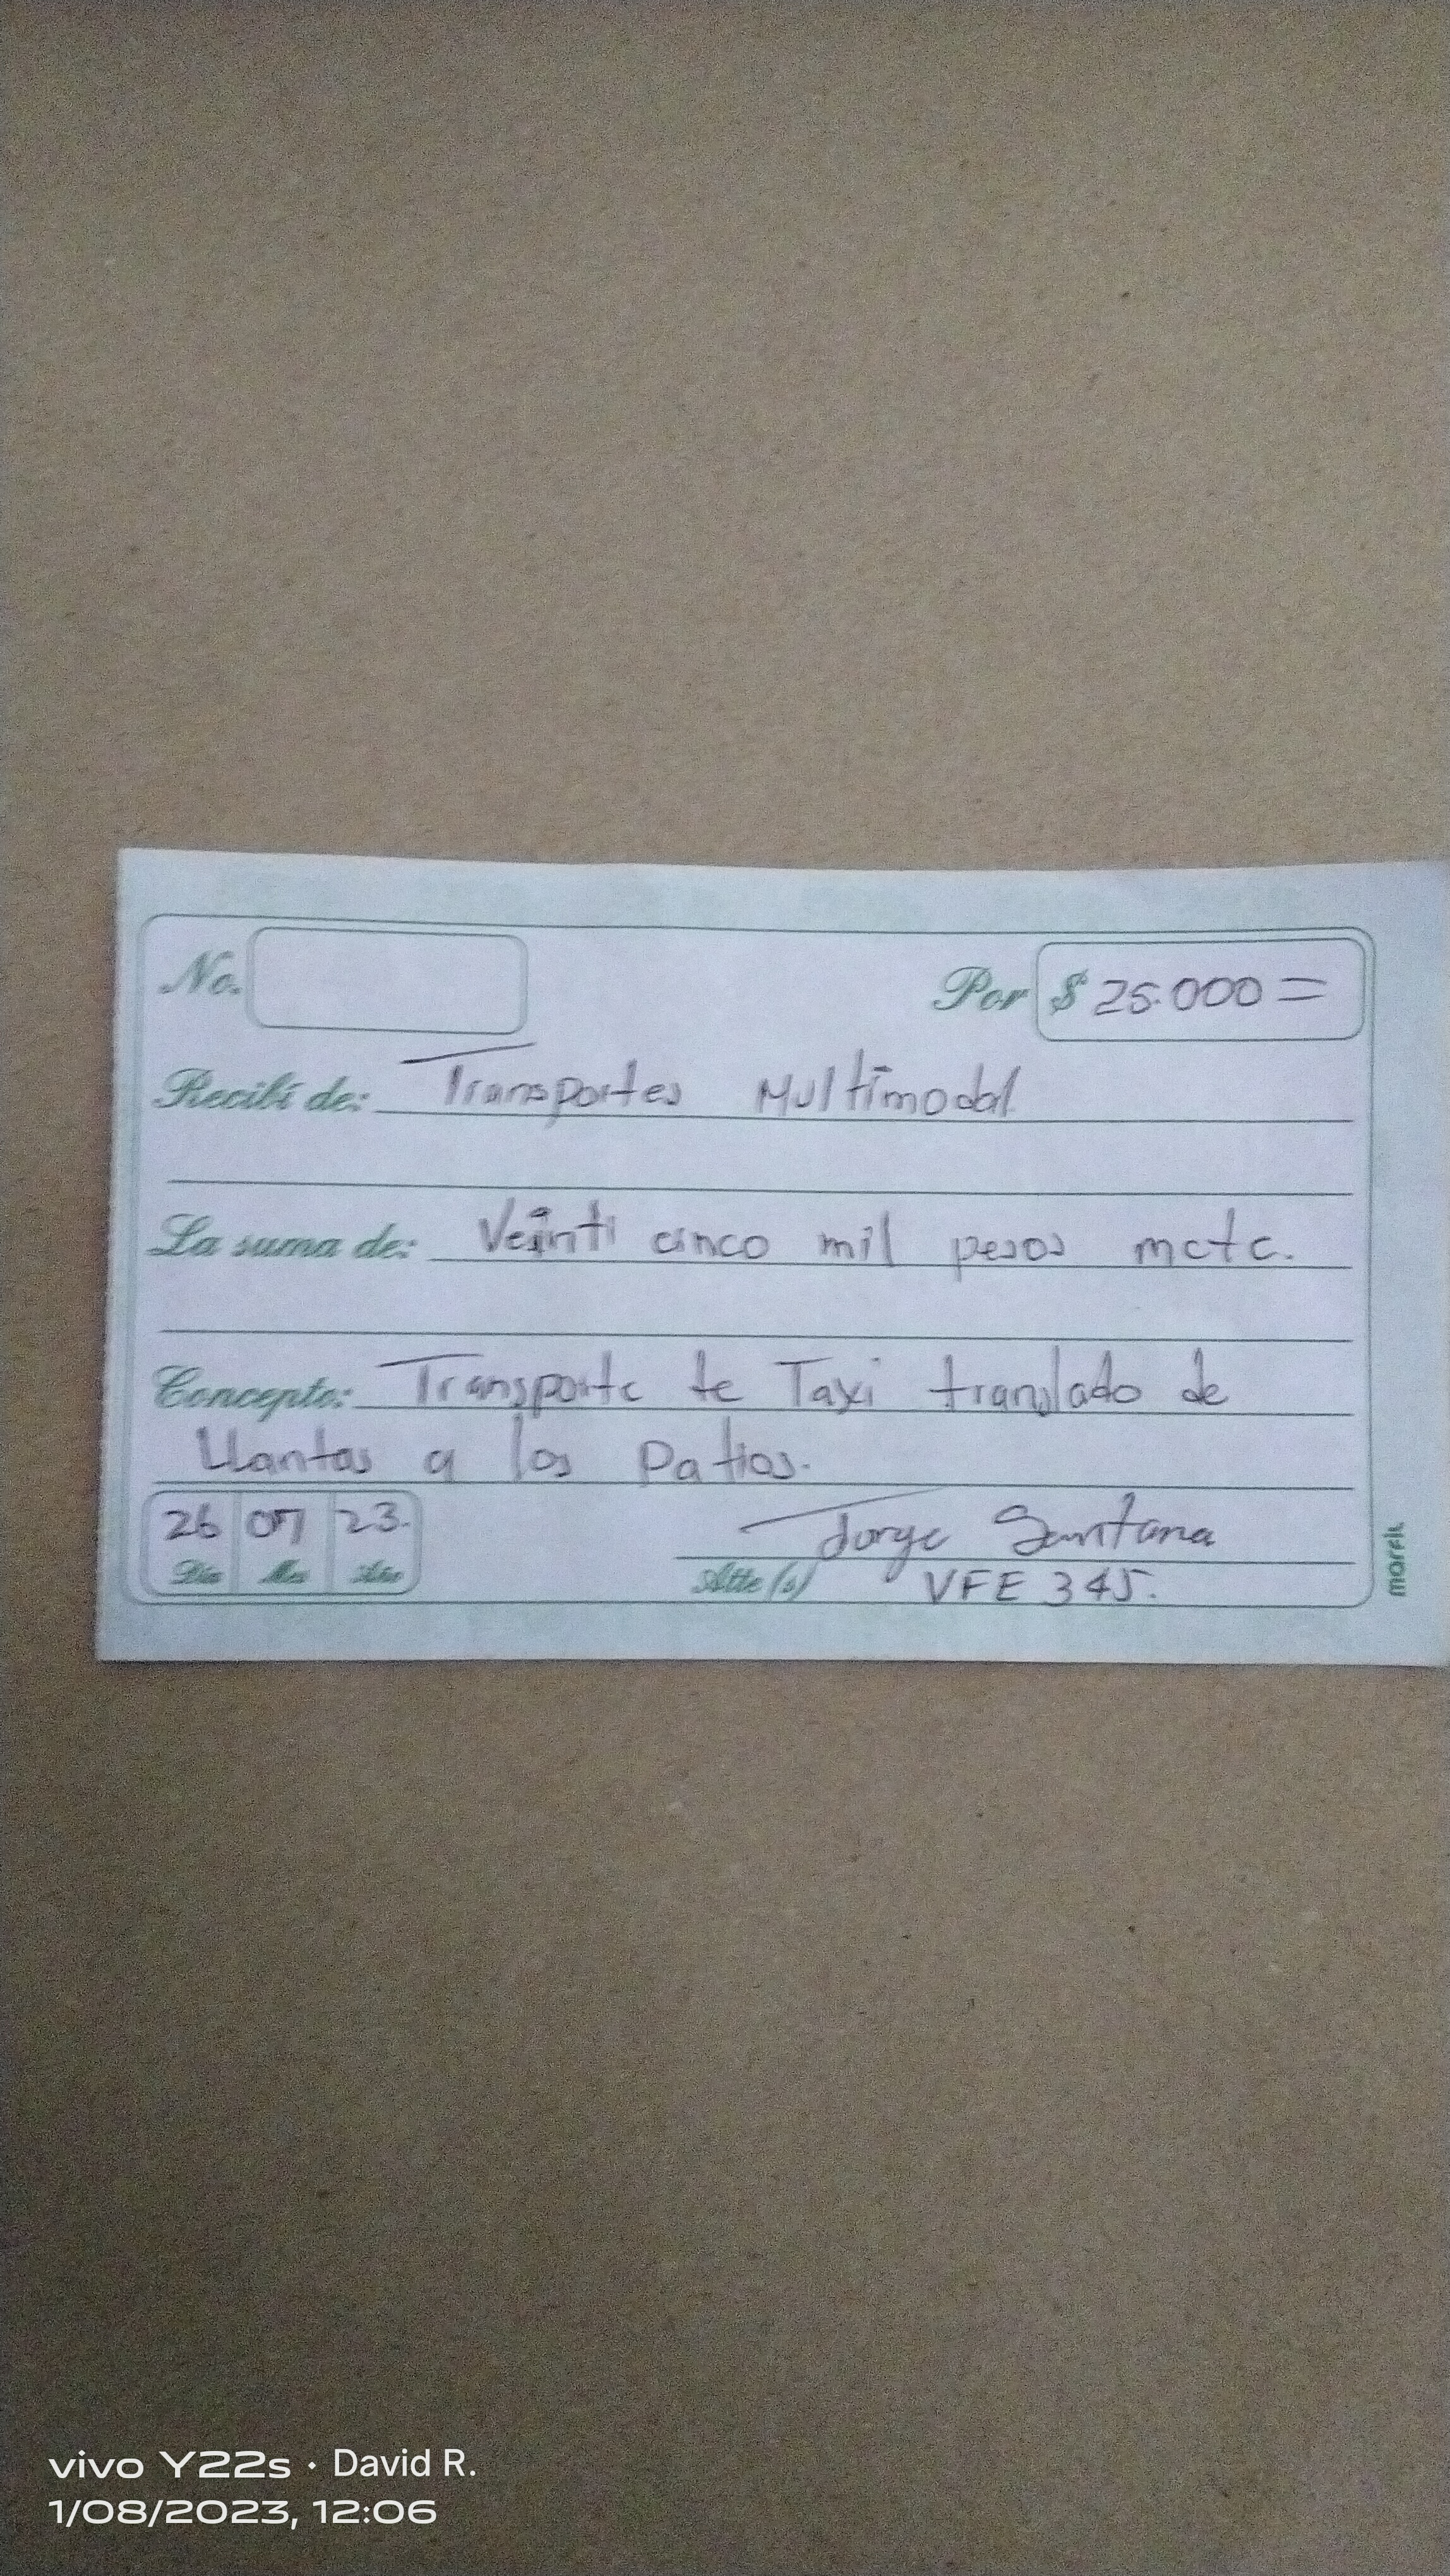 No.
Por $ 25.000 =
Recibí de: Transportes Multimodal
La suma de: Veinti cinco mil pesos mctc.
Concepto: Transporte te Taxi translado de
Llantas a los Patios.
26 07 23.
Día Mes Año
Jorge Santana
Atte (s) VFE 345.
morfix
vivo Y22s · David R.
1/08/2023, 12:06